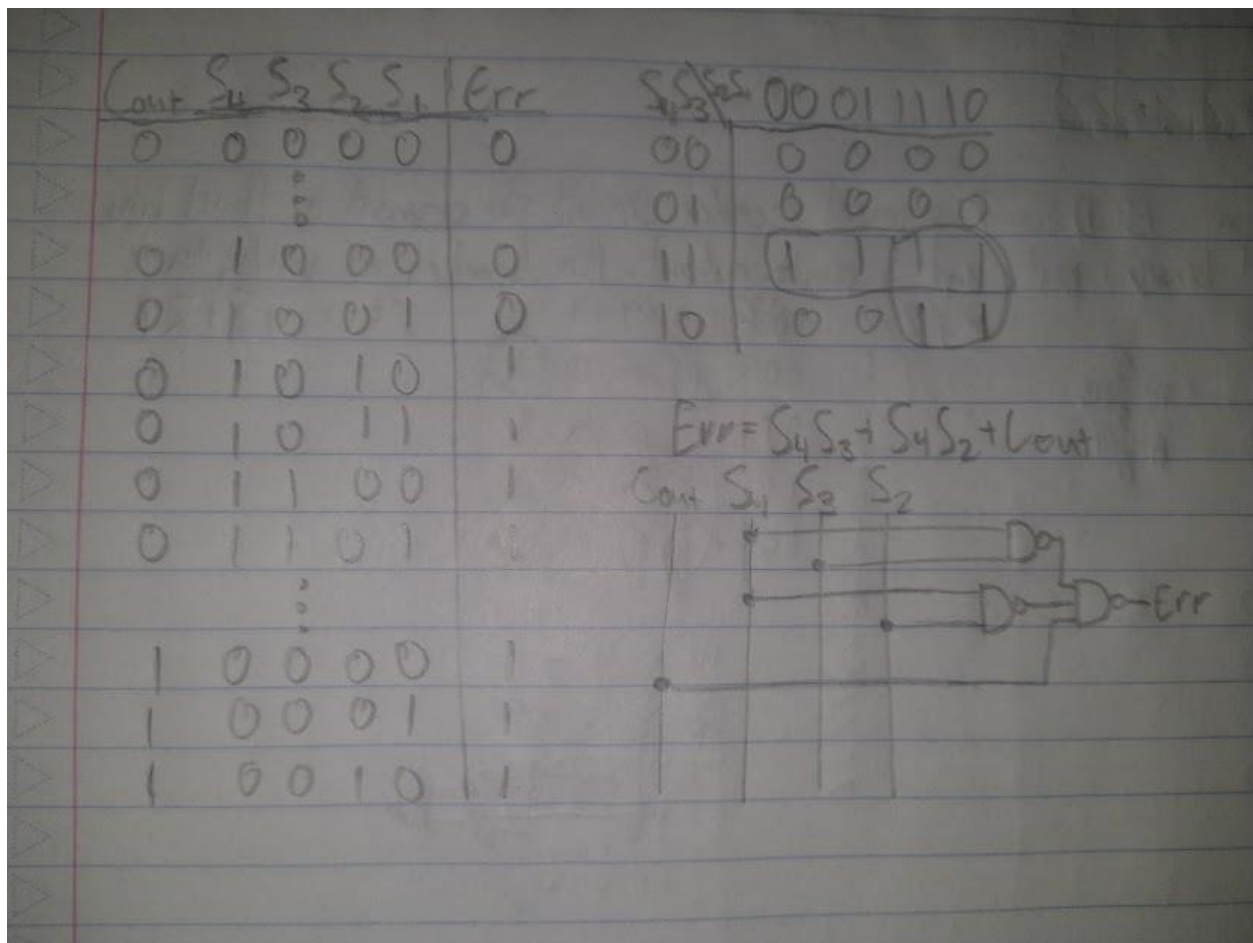 Cout S4 S3 S2 S1 Err
0 0 0 0 0 0
0 1 0 0 0 0
0 1 0 0 1 0
0 1 0 1 0 1
0 1 0 1 1 1
0 1 1 0 0 1
0 1 1 0 1 1
1 0 0 0 0 1
1 0 0 0 1 1
1 0 0 1 0 1
S4S3\S2S1 00 01 11 10
00 0 0 0 0
01 0 0 0 0
11 1 1 1 1
10 0 0 1 1
Err = S4S3 + S4S2 + Cout
Cout S4 S3 S2
Err